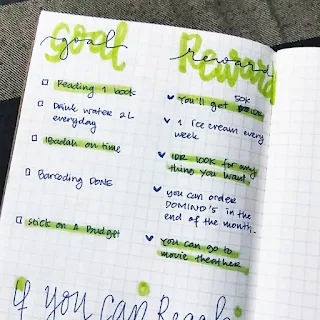 goal
reward
Reading 1 book
Drink water 2L
everyday
Ibadah on time
Barcoding DONE
stick on A Budget
50K
You'll get
1 ice cream every
week
IDR 100K for any
thing you want!
you can order
DOMINO'S in the
end of the month.
You can go to
movie theather
if you can Reach